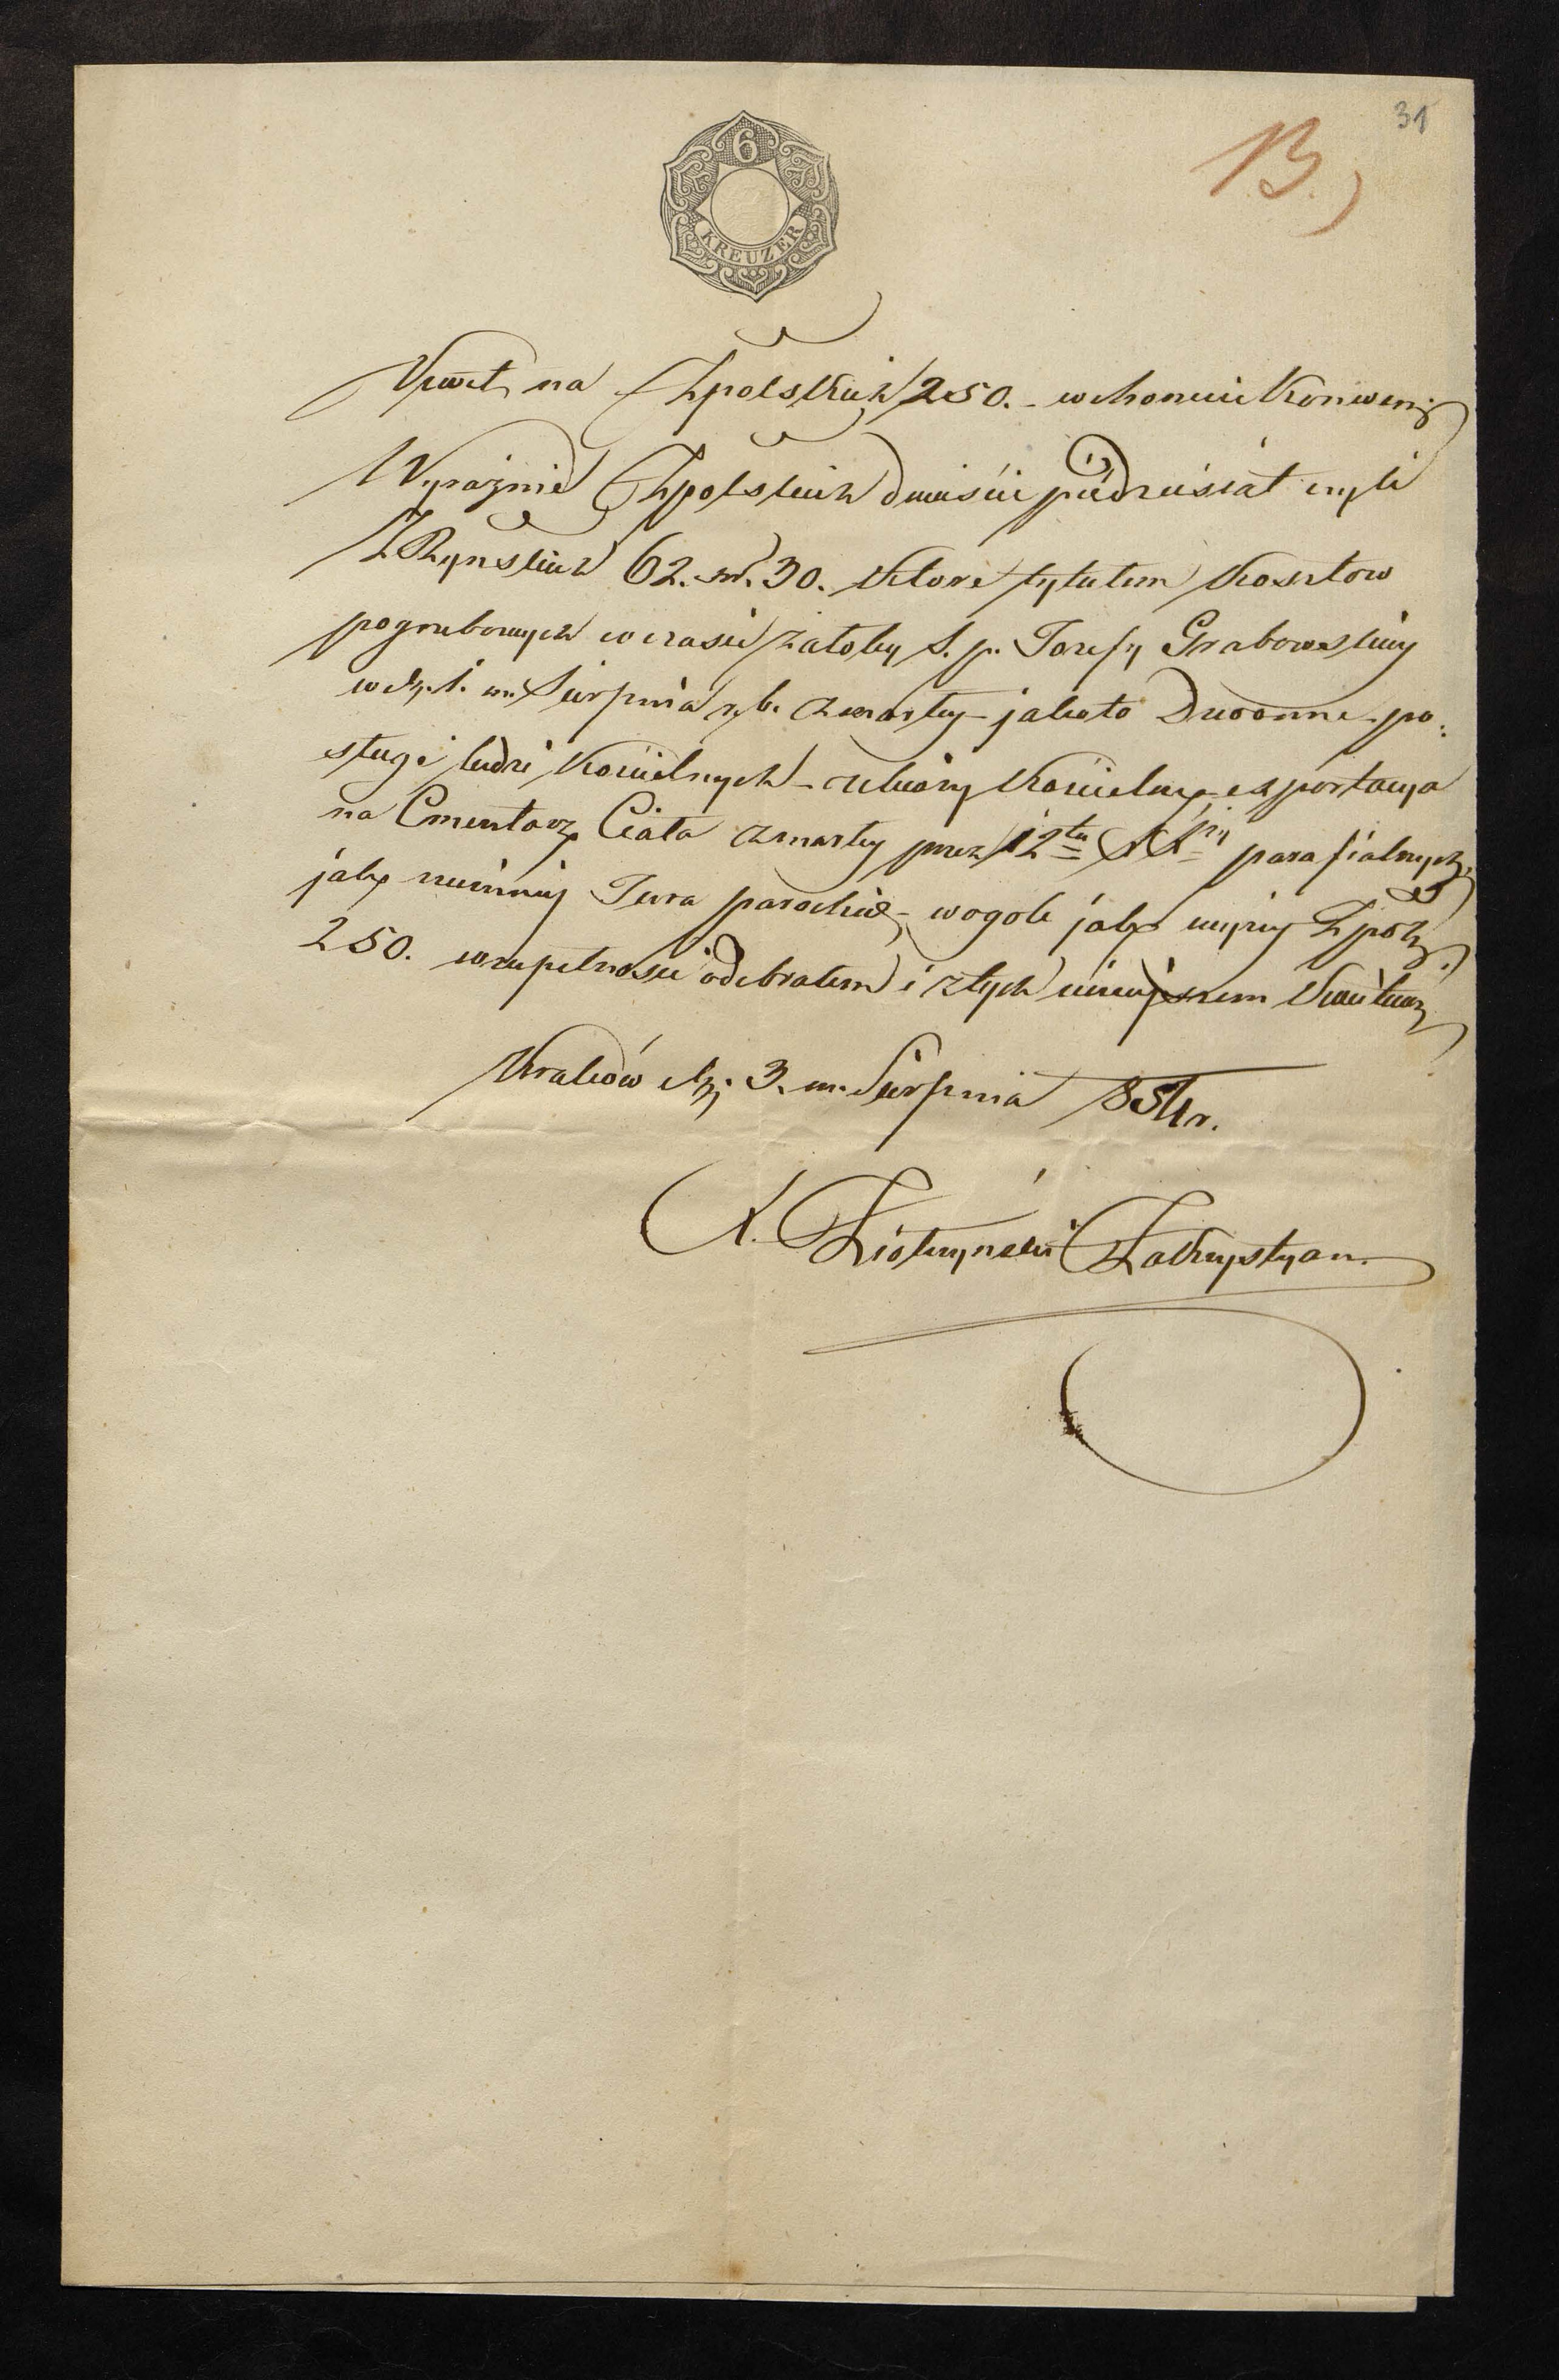 31
B.)
6
KREUZER
Kwit na Złpolskich 250. – w monecie Konwenj
Wyraźnie Złpolskich dwieście piędziesiąt czyli
ZłRyńskich 62. xr. 30. które tytułem kosztow
pogrzebowych w czasie żałoby S. p. Jozefy Grabowskiej
w dz. 1. m. Sierpnia r. b. zmarłej – jakoto Dzwonne – po:
sługi ludzi Kościelnych – ubiory Kościelne, exportacya
na Cmentarz Ciała zmarłej przez 12tu XX parafialnych,
jak niemniej Jura parochiæ, – wogole jak wyżej Złpol:
250. w zupełności odebrałem i z tych niniejszem kwituię
Kraków dz. 3. m. Sierpnia 854 r.
X. Ziołczyński Zakrystyan.